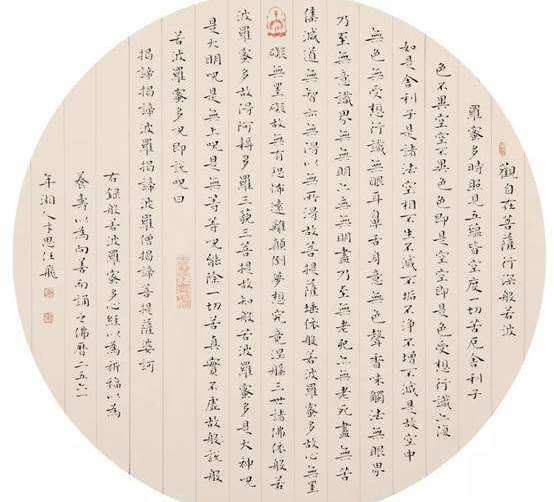 觀自在菩薩行深般若波
羅蜜多時照見五蘊皆空度一切苦厄舍利子
色不異空空不異色色即是空空即是色受想行識亦復
如是舍利子是諸法空相不生不滅不垢不淨不增不減是故空中
無色無受想行識無眼耳鼻舌身意無色聲香味觸法無眼界
乃至無意識界無無明亦無無明盡乃至無老死亦無老死盡無苦
集滅道無智亦無得以無所得故菩提薩埵依般若波羅蜜多故心無罣
礙無罣礙故無有恐怖遠離顛倒夢想究竟涅槃三世諸佛依般若
波羅蜜多故得阿耨多羅三藐三菩提故知般若波羅蜜多是大神呪
是大明呪是無上呪是無等等呪能除一切苦真實不虛故說般
若波羅蜜多呪即說呪曰
揭諦揭諦波羅揭諦波羅僧揭諦菩提薩婆訶
右錄般若波羅蜜多心經以為祈福以為
養壽以為向善而誦之佛曆二五六一
年湘人